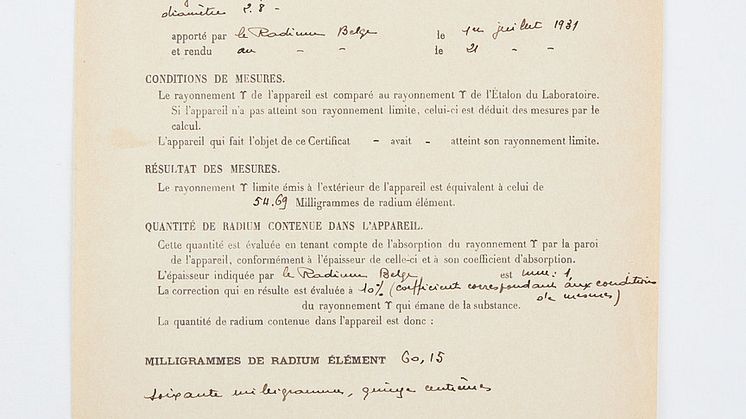 diamètre 2.8 -
apporté par le Radium Belge le 1er juillet 1931
et rendu au - - le 21 - -
CONDITIONS DE MESURES.
Le rayonnement ϒ de l'appareil est comparé au rayonnement ϒ de l'Étalon du Laboratoire.
Si l'appareil n'a pas atteint son rayonnement limite, celui-ci est déduit des mesures par le
calcul.
L'appareil qui fait l'objet de ce Certificat - avait - atteint son rayonnement limite.
RÉSULTAT DES MESURES.
Le rayonnement ϒ limite émis à l'extérieur de l'appareil est équivalent à celui de
54.69 Milligrammes de radium élément.
QUANTITÉ DE RADIUM CONTENUE DANS L'APPAREIL.
Cette quantité est évaluée en tenant compte de l'absorption du rayonnement ϒ par la paroi
de l'appareil, conformément à l'épaisseur de celle-ci et à son coefficient d'absorption.
L'épaisseur indiquée par le Radium Belge est mm: 1,
La correction qui en résulte est évaluée à 10% (coefficient correspondant aux conditions
de mesures)
du rayonnement ϒ qui émane de la substance.
La quantité de radium contenue dans l'appareil est donc :
MILLIGRAMMES DE RADIUM ÉLÉMENT 60,15
soixante milligrammes, quinze centièmes